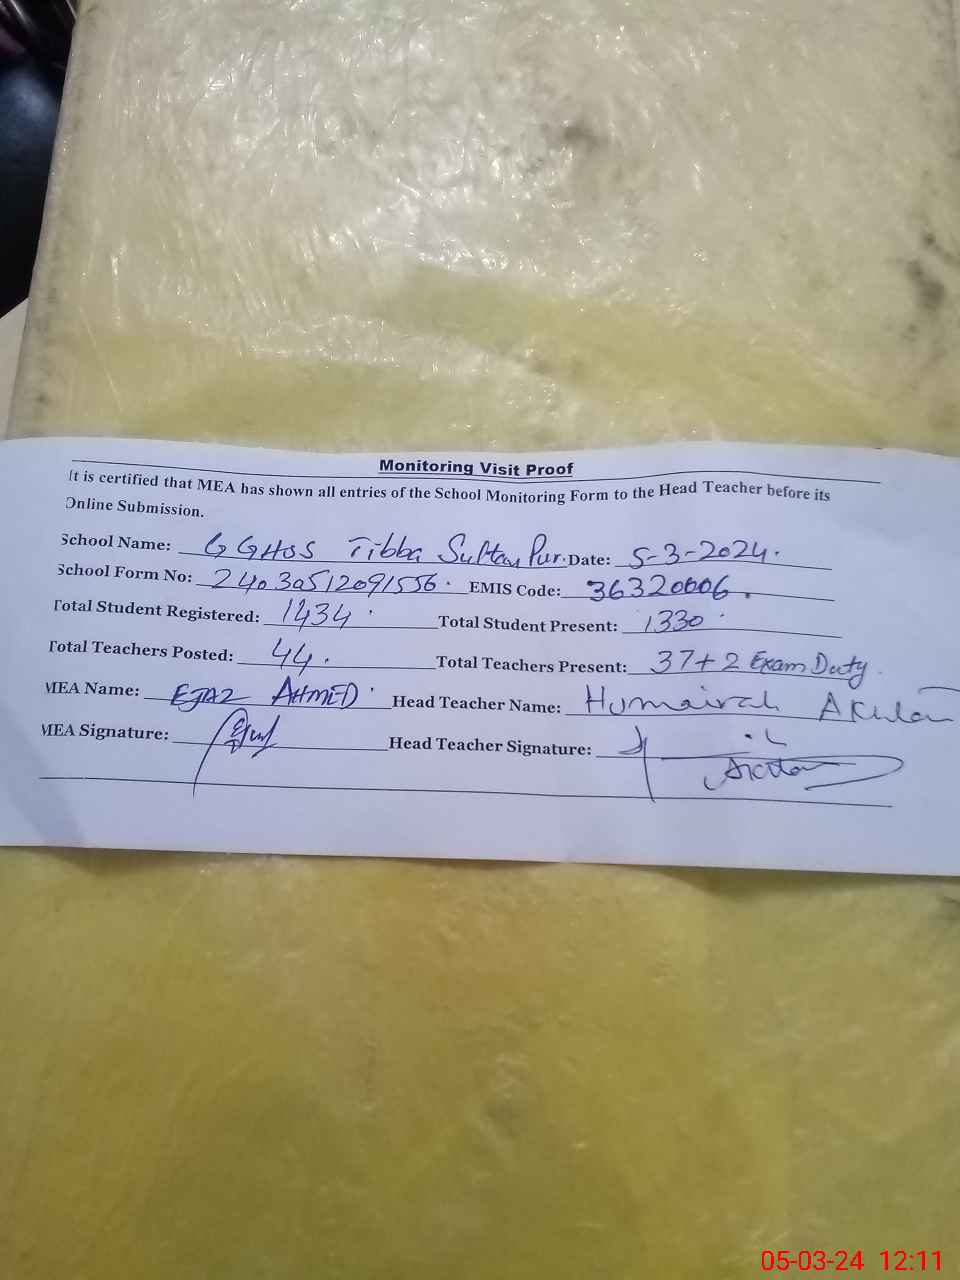 Monitoring Visit Proof
It is certified that MEA has shown all entries of the School Monitoring Form to the Head Teacher before its
Online Submission.
School Name: GGHSS Tibba Sultan Pur. Date: 5-3-2024.
School Form No: 24030512091556. EMIS Code: 36320006.
Total Student Registered: 1434 Total Student Present: 1330
Total Teachers Posted: 44. Total Teachers Present: 37+2 Exam Duty.
MEA Name: EJAZ AHMED Head Teacher Name: Humairah Akhtar
MEA Signature: Head Teacher Signature:
05-03-24 12:11